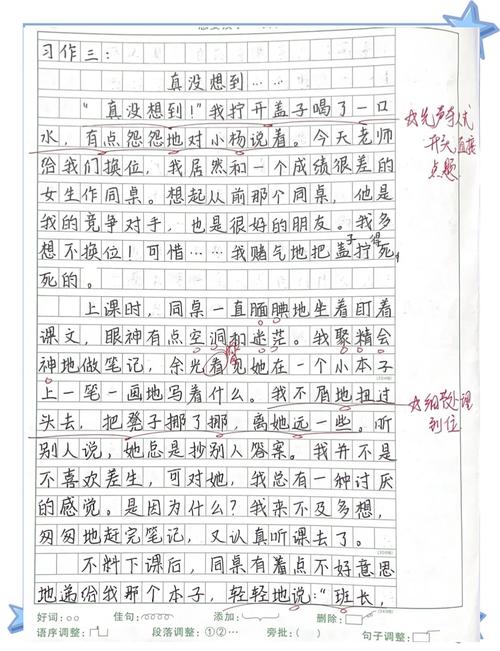 习作三：
真没想到……
“真没想到！”我拧开盖子喝了一口
水，有点怨怨地对小杨说着。今天老师
给我们换位，我居然和一个成绩很差的
女生作同桌。想起从前那个同桌，他是
我的竞争对手，也是很好的朋友。我多
想不换位！可惜……我赌气地把盖子拧得死
死的。
上课时，同桌一直腼腆地坐着盯着
课文，眼神有点空洞和迷茫。我聚精会
神地做笔记，余光看见她在一个小本子
上一笔一画地写着什么。我不屑地扭过
头去，把凳子挪了挪，离她远一些。听
别人说，她总是抄别人答案。我并不是
不喜欢差生，可对她，我总有一种讨厌
的感觉。是因为什么？我来不及多想，
匆匆地赶完笔记，又认真听课去了。
不料下课后，同桌有着点不好意思
地递给我那个本子，轻轻地说：“班长，
开头直接
点题
细节处理
到位
好词：
佳句：
添加：
删除：
语序调整：
段落调整：①②…
旁批：（ ）
句子调整：